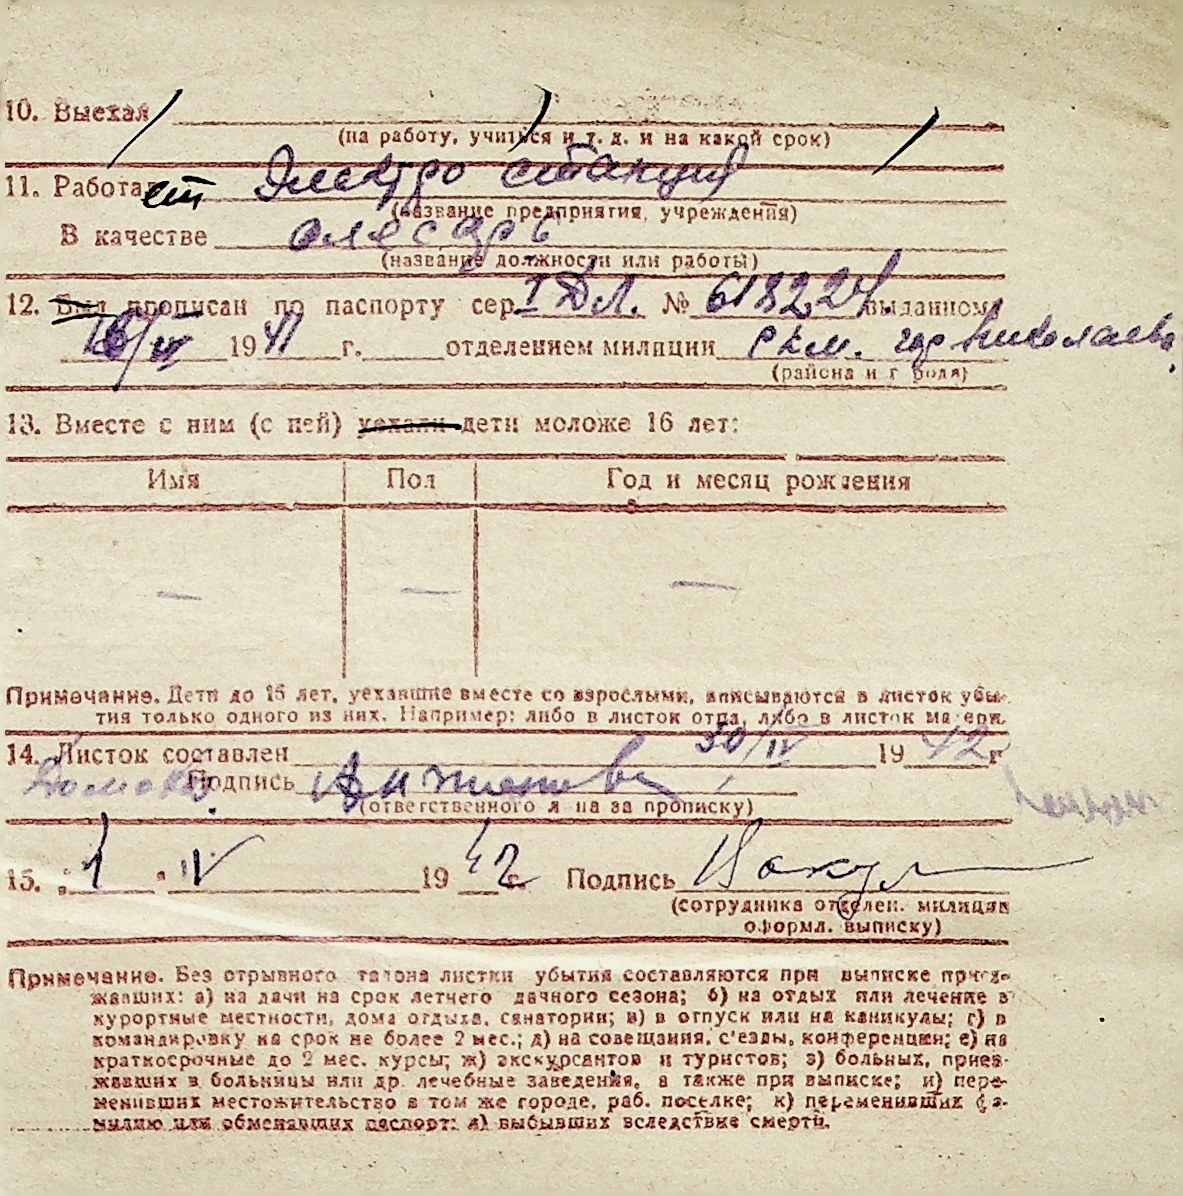 10. Выехал
(на работу, учиться и т. д. и на какой срок)
11. Работает Электро станция
(название предприятия, учреждения)
В качестве слесарь
(название должности или работы)
12. Был прописан по паспорту сер. I ДЛ. № 618224 выданном
/IV 1941 г. отделением милиции Р КМ. гор Николаева
(района и города)
13. Вместе с ним (с ней) уехали дети моложе 16 лет:
Имя Пол Год и месяц рождения
— — —
Примечание. Дети до 16 лет, уехавшие вместе со взрослыми, вписываются в листок убы-
тия только одного из них. Например: либо в листок отца, либо в листок матери.
14. Листок составлен 30/IV 1942 г
Подпись
(ответственного л-ца за прописку)
15. „1 " IV 1942 г. Подпись
(сотрудника отделен. милиции
оформл. выписку)
Примечание. Без отрывного талона листки убытия составляются при выписке приез-
жавших: а) на дачи на срок летнего дачного сезона; б) на отдых или лечение в
курортные местности, дома отдыха, санатории; в) в отпуск или на каникулы; г) в
командировку на срок не более 2 мес.; д) на совещания, с'езды, конференции; е) на
краткосрочные до 2 мес. курсы; ж) экскурсантов и туристов; з) больных, приез-
жавших в больницы или др. лечебные заведения, а также при выписке; и) пере-
менивших местожительство в том же городе, раб. поселке; к) переменивших фа-
милию или обменявших паспорт; л) выбывших вследствие смерти.